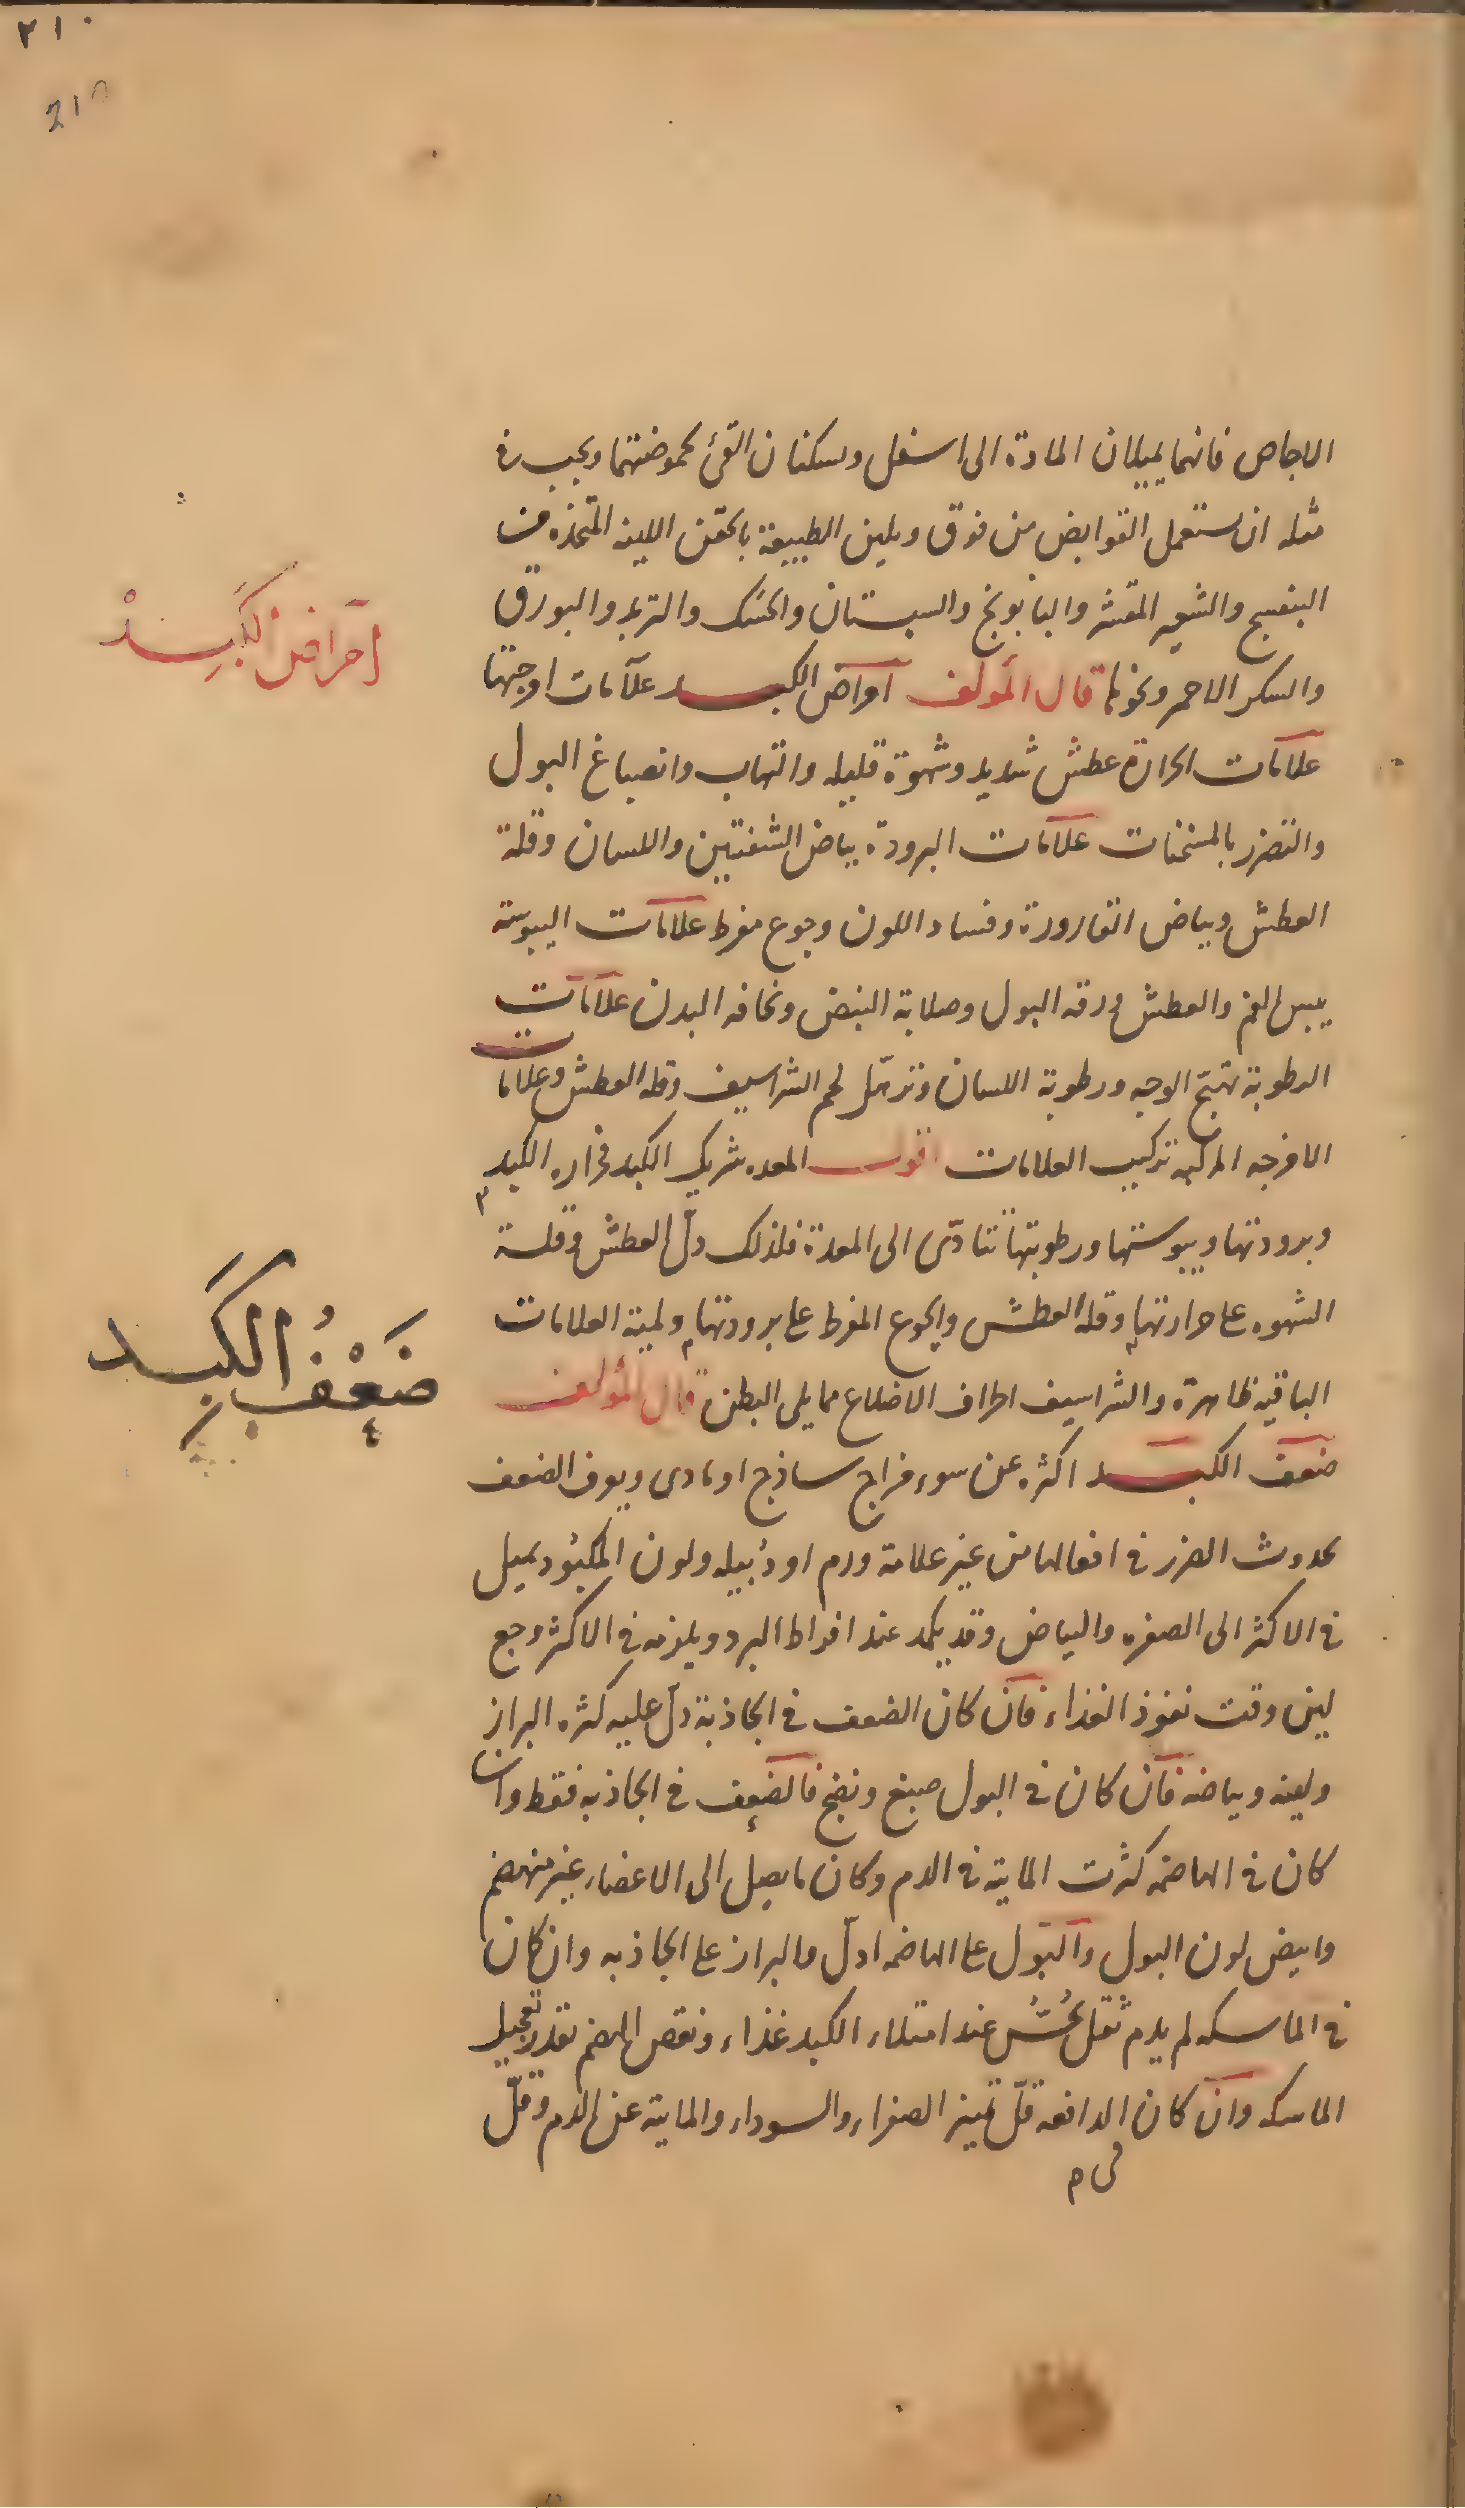 ٢١٠
210
الاجاص فانهما يميلان المادة الى اسفل ويسكنان القئ بحموضتهما ويجب فى
مثله ان يستعمل القوابض من فوق ويلين الطبيعة بالحقن اللينه المتخذه من
البنفسج والشعير المقشر والبابونج والسبستان والحسك والتربد والبورق
امراض الكبد
والسكر الاحمر ونحوها قال المؤلف امراض الكبد علامات امزجتها
علامات الحرارة عطش شديد وشهوة قليله والتهاب وانصباغ البول
والتضرر بالمسخنات علامات البرودة بياض الشفتين واللسان وقلة
العطش وبياض القارورة وفساد اللون وجوع مفرط علامات اليبوسة
يبس الفم والعطش ورقه البول وصلابة النبض ونحافه البدن علامات
الرطوبة تهبج الوجه ورطوبة اللسان وترهل لحم الشراسيف وقله العطش وعلامات
الامزجه المركبه تركيب العلامات اقول المعده شريك الكبد فحراره الكبد
وبرودتها ويبوستها ورطوبتها تتادى الى المعدة فلذلك دل العطش وقلة
الشهوه على حرارتها وقله العطش والجوع المفرط على برودتها ولمية العلامات
ضعف الكبد
الباقيه ظاهرة والشراسيف اطراف الاضلاع مما يلى البطن قال المؤلف
ضعف الكبد اكثره عن سوء مزاج ساذج او مادى ويعرف الضعف
بحدوث الضرر فى افعالها من غير علامة ورم او دبيله ولون المكبود يميل
فى الاكثر الى الصفره والبياض وقد يكمد عند افراط البرد ويلزمه فى الاكثر وجع
لين وقت نفوذ الغذاء فان كان الضعف فى الجاذبة دل عليه كثره البراز
ولينه وبياضه فان كان فى البول صبغ ونضج فالضعف فى الجاذبه فقط وان
كان فى الهاضمه كثرت المايية فى الدم وكان ما يصل الى الاعضاء غير منهضم
وابيض لون البول والبول على الهاضمه ادل والبراز على الجاذبه وان كان
فى الماسكه لم يدم ثقل يحس عند امتلاء الكبد غذاء ونقص الهضم بقدر تعجيل
الماسكه وان كان الدافعه قل تميز الصفراء والسوداء والمايية عن الدم وقل
فى م